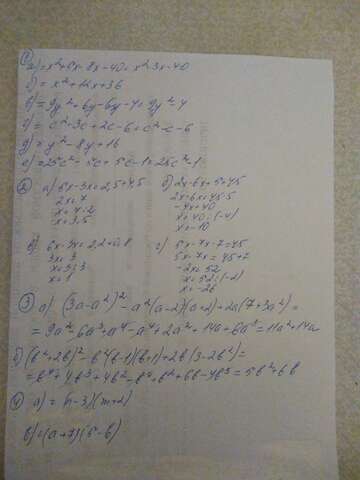 1) а) = x²+5x-8x-40 = x²-3x-40
б) = x²+12x+36
в) = 9y²+6y-6y-4 = 9y²-4
г) = c²-3c+2c-6 = c²-c-6
д) = y²-8y+16
е) = 25c²-5c+5c-1 = 25c²-1
2) а) 5x-3x=2,5+4,5
2x=7
x=7:2
x=3,5
б) 2x-6x+5=45
2x-6x=45-5
-4x=40
x=40:(-4)
x=-10
в) 6x-3x=2,2+0,8
3x=3
x=3:3
x=1
г) 5x-7x-7=45
5x-7x=45+7
-2x=52
x=52:(-2)
x=-26
3) а) (3a-a²)²-a²(a-2)(a+2)+2a(7+3a²)=
=9a²-6a³+a⁴-a⁴+2a²+14a+6a³=11a²+14a
б) (b²+2b)²-b²(b-1)(b+1)+2b(3-2b²)=
=b⁴+4b³+4b²-b⁴+b²+6b-4b³=5b²+6b
4) а) = (n-3)(m+2)
в) = (a+7)(5-b)